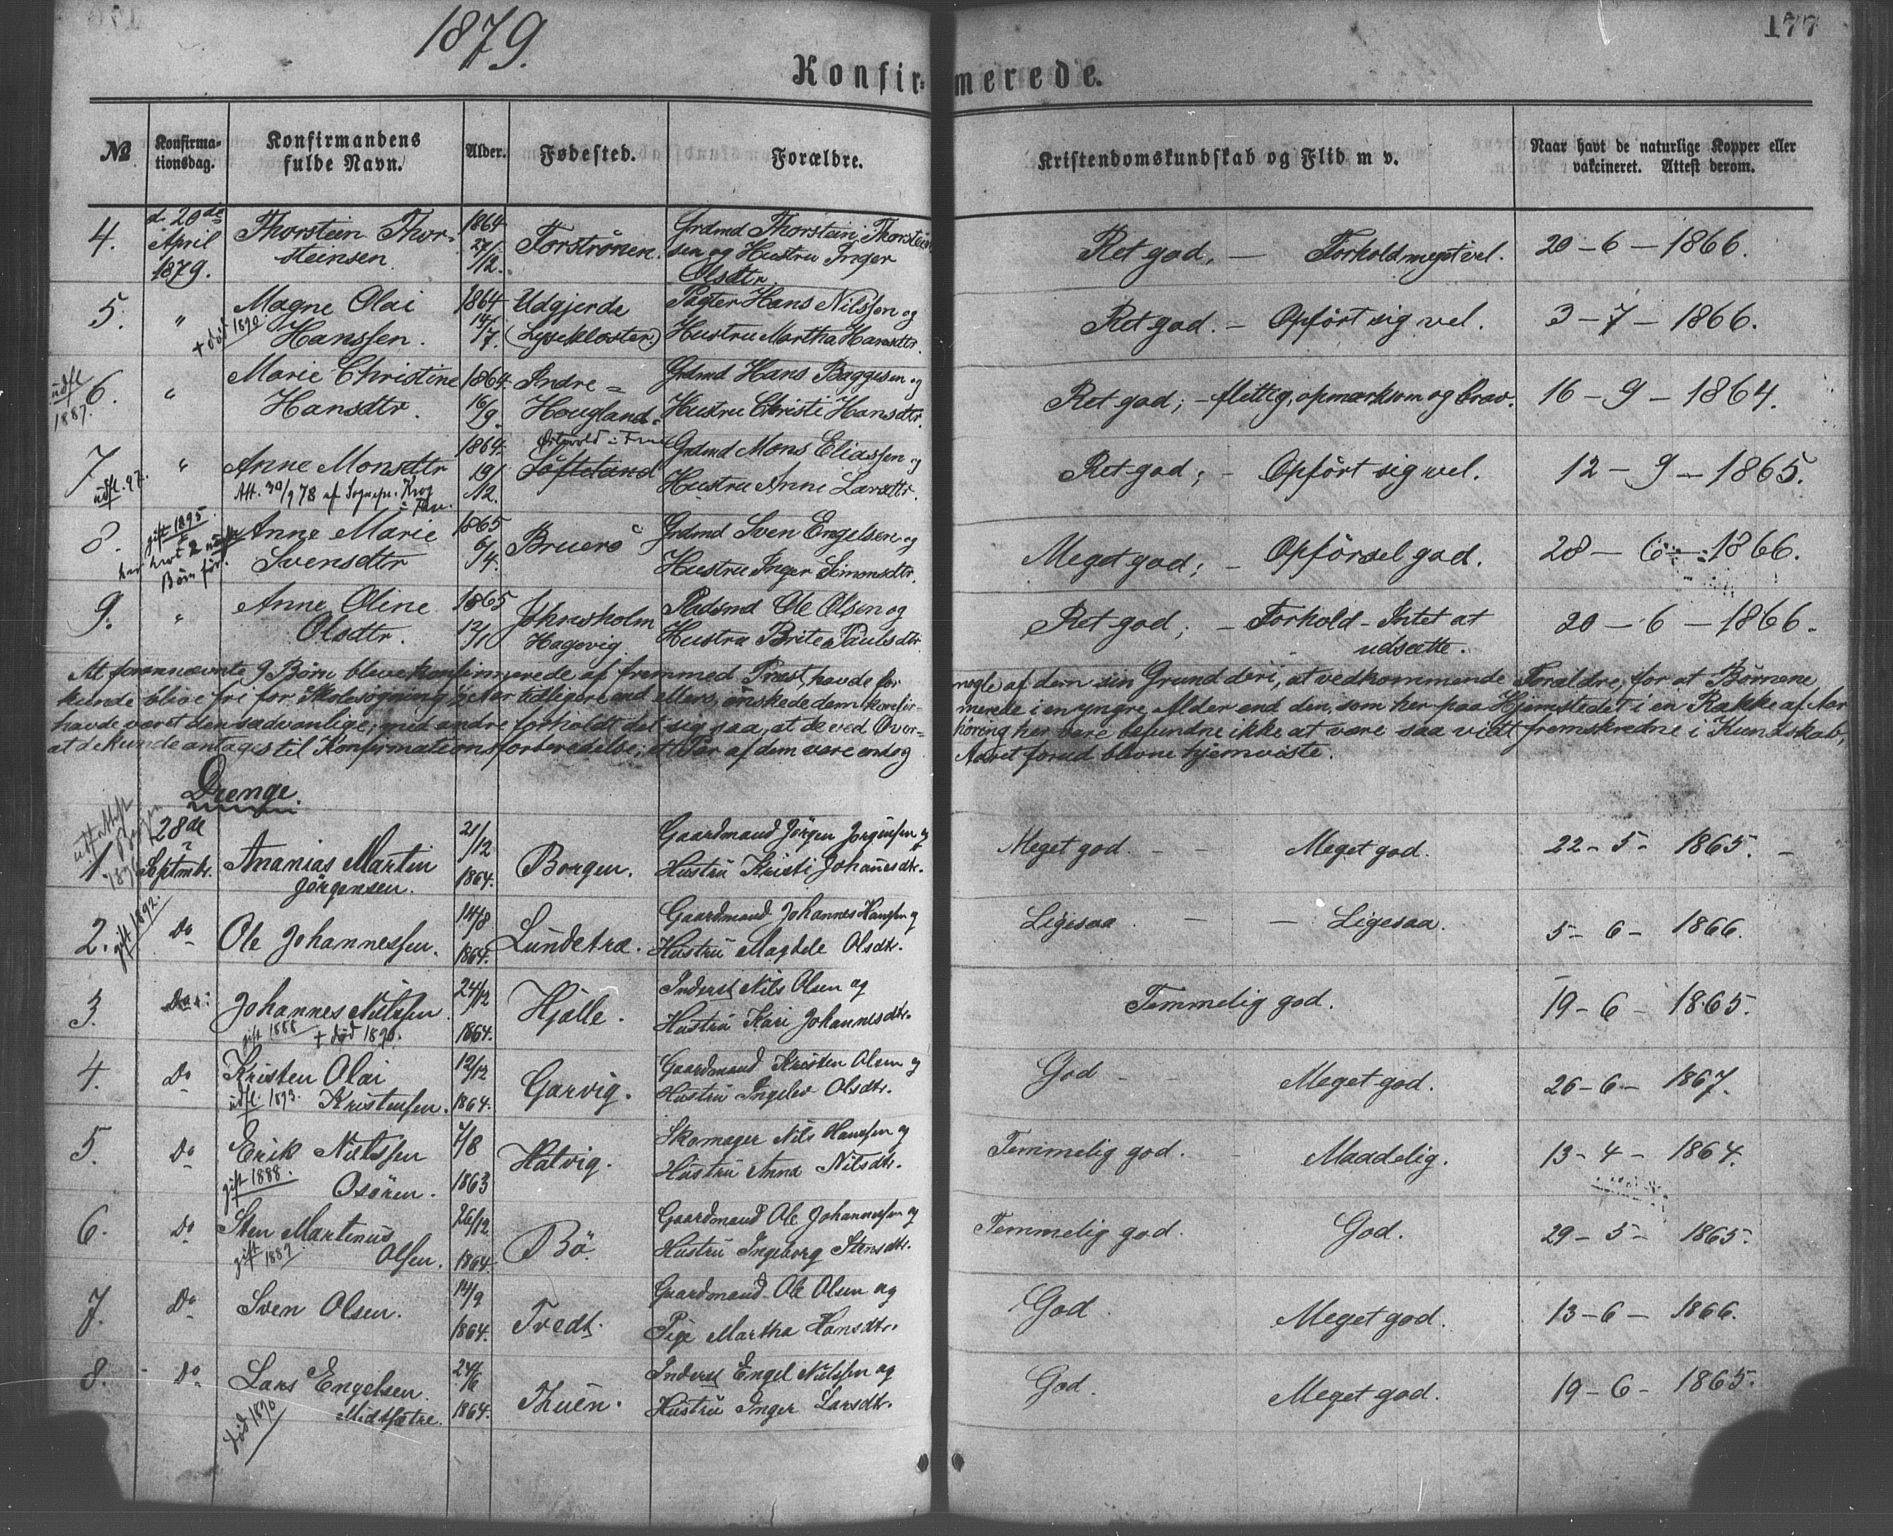 1879.
177
Konfirmerede.
№ Konfirmationsdag. Konfirmandens fulde Navn. Alder. Fødested. Forældre. Kristendomskundskab og Flid m v. Naar havt de naturlige Kopper eller vakcineret. Attest derom.
4. d. 20de April 1879. Thorstein Thorsteinsen 1864 27/12. Forstrønen. Grdmd Thorstein Thorsteinsen og Hustru Inger Olsdtr Ret god, — Forhold meget vel. 20 – 6 – 1866.
5. " Magne Olai Hanssen. + död 1890 1864 14/7. Udgjerde (Lysekloster) Pagter Hans Nilssen og Hustru Martha Hansdtr. Ret god. – Opført sig vel. 3 – 7 – 1866.
6. udfl 1887. " Marie Christine Hansdtr. 1864 16/9. Indre = Hougland Grdmd Hans Baggesen og Hustru Christi Hansdtr. Ret god; – flittig, opmærksom og brav. 16 – 9 – 1864.
7 udfl. 97. " Anne Monsdtr Att. 30/9 78 af Sognepr. Krog 1864 19/12. Søfteland Grdmd Mons Eliassen og Hustru Anne Larsdtr. Ret god; – Opført sig vel. 12 – 9 – 1865.
8. gift 1895. har havt 2 Børn før. Anne Marie Svensdtr 1865 6/4. Bruerø Grdmd Sven Engelsen og Hustru Inger Simonsdtr. Meget god; – Opførsel god. 28 – 6 – 1866.
9. " Anne Oline Olsdtr. 1865 12/1 Johnsholm Hagevig. Pladsmd Ole Olsen og Hustru Brite Paulsdtr. Ret god; – Forhold – Intet at udsætte. 20 – 6 – 1866.
At forannævnte 9 Børn bleve konfirmerede af fremmed Præst havde for nogle af dem sin Grund deri, at vedkommende Forældre, for at Børnene
kunde blive fri for Skolesøgning tidligere end ellers, ønskede dem konfirmerede i en yngre Alder end den, som her paa Hjemstedet i en Række af Aar
havde været den sædvanlige; med andre forholdt det sig saa, at de ved Overhøring her bare befundne ikke at være saa vidt fremskredne i Kundskab,
at de kunde antages til Konfirmationsforberedelse; et Par af dem vare endog Aaret forud blevne hjemviste.
Drenge.
1. 28de Septmbr. Ananias Martin Jørgensen. 21/12 1864. Borgen. Gaardmand Jörgen Jörgensen og Hustru Kristi Johannesdtr. Meget god. – – Meget god. 22 – 5 – 1865. –
2. gift 1892. Do Ole Johannessen. 14/8 1864. Lundetræ. Gaardmand Johannes Hanssen og Hustru Magdele Olsdtr. Ligesaa – – Ligesaa. 5 – 6 – 1866.
3. Do Johannes Nilssen gift 1888 + død 1890. 24/12 1864. Hjelle. Inderst Nils Olsen og Hustru Kari Johannesdtr. Temmelig god. 19 – 6 – 1865.
4. Do Kristen Olai Kristensen. udfl. 1893. 12/12 1864. Garvig. Gaardmand Kristen Olsen og Hustru Ingelev Olsdtr. God – – Meget god. 26 – 6 – 1867.
5. Do Erik Nilssen Osøren. gift 1888. 4/8 1863 Hatvig. Skomager Nils Hanssen og Hustru Anna Nilsdtr. Temmelig god. – Maadelig. 13 – 4 – 1864.
6. Do Sten Martinus Olsen. gift 1887 26/12 1864. Bö Gaardmand Ole Johannessen og Hustru Ingeborg Stensdtr. Temmelig god. God. 29 – 5 – 1865.
7. Do Sven Olsen. 14/9 1864. Tvedt. Gaardmand Ole Olsen og Pige Martha Hansdtr. God Meget god. 13 – 6 – 1866.
8. Do Lars Engelsen Midtsætre. död 1890 24/6 1864. Thuen. Inderst Engel Nilssen og Hustru Inger Larsdtr. God. Meget god. 19 – 6 – 1865.